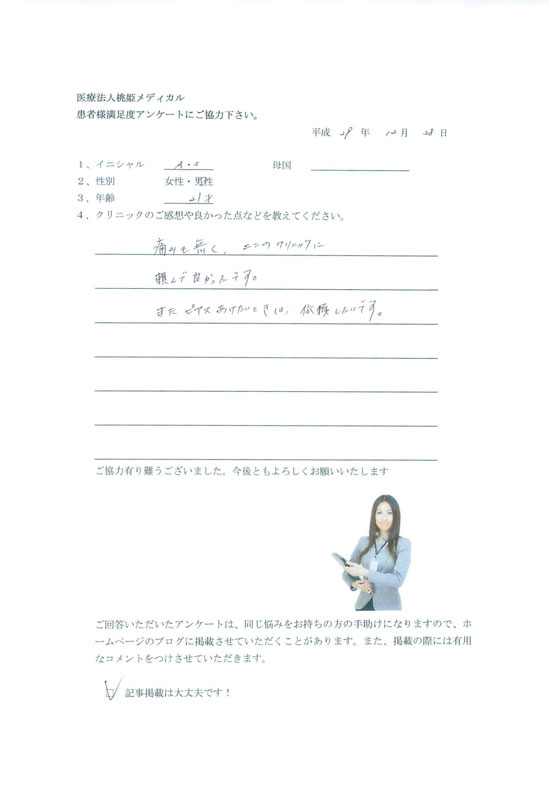 医療法人桃姫メディカル
患者様満足度アンケートにご協力下さい。
平成 29 年 12 月 28 日
1、イニシャル A・S 母国
2、性別 女性・男性
3、年齢 21才
4、クリニックのご感想や良かった点などを教えてください。
痛みも無く、ここのクリニックに
頼んで良かったです。
またピヤスあけたいときは、依頼したいです。
ご協力有り難うございました。今後ともよろしくお願いいたします
ご回答いただいたアンケートは、同じ悩みをお持ちの方の手助けになりますので、ホ
ームページのブログに掲載させていただくことがあります。また、掲載の際には有用
なコメントをつけさせていただきます。
記事掲載は大丈夫です！